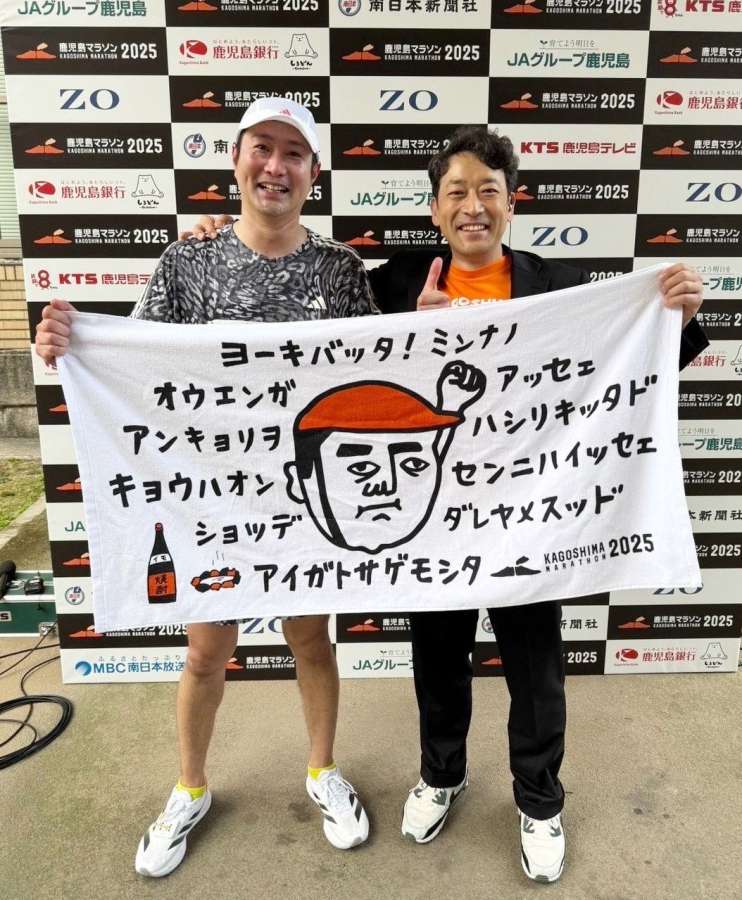 JAグループ鹿児島
鹿児島マラソン 2025
KAGOSHIMA MARATHON
南日本新聞社
KTS
鹿児島マラソン 2025
KAGOSHIMA MARATHON
鹿児島銀行
Kagoshima Bank
しろどん
鹿児島マラソン 2025
KAGOSHIMA MARATHON
育てよう明日を
JAグループ鹿児島
鹿児島マラソン 2025
KAGOSHIMA MARATHON
ZO
ZO
鹿児島マラソン 2025
KAGOSHIMA MARATHON
鹿児島銀行
鹿児島マラソン 2025
KAGOSHIMA MARATHON
KTS 鹿児島テレビ
鹿児島銀行
Kagoshima Bank
育てよう明日を
JAグループ鹿児島
鹿児島マラソン 2025
KAGOSHIMA MARATHON
ZO
鹿児島マラソン 2025
KAGOSHIMA MARATHON
ZO
鹿児島マラソン 2025
KAGOSHIMA MARATHON
KTS 鹿児島テレビ
ヨーキバッタ!ミンナノ
オウエンガ
アンキョリヲ
キョウハオン
ショッデ
アッセェ
ハシリキッタド
センニハイッセェ
ダレヤメスッド
アイガトサゲモシタ
イモ
焼酎
KAGOSHIMA
MARATHON 2025
ふるさとたっぷり
MBC南日本放送
鹿児島マラソン 2025
KAGOSHIMA MARATHON
JAグループ鹿児島
ZO
鹿児島銀行
Kagoshima Bank